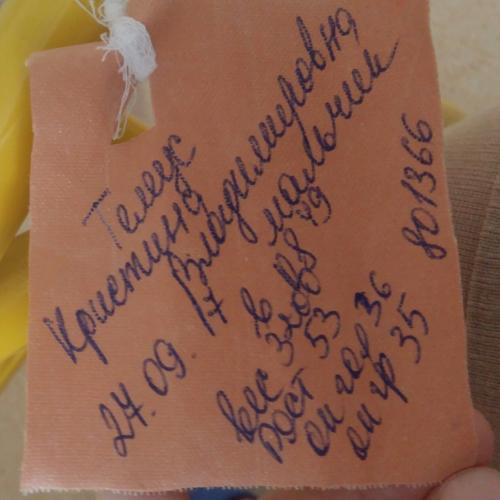 Телек
Кристина
Владимировна
27.09. 17 в 8 19 мальчик
вес 3400
рост 53
ок гол 36
ок гр 35
801366